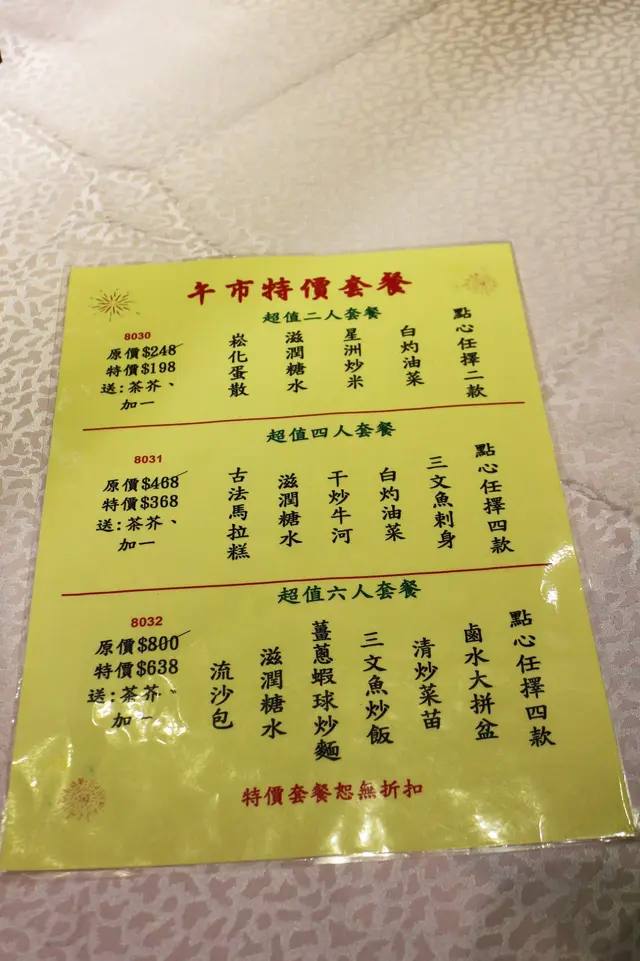 午市特價套餐
超值二人套餐
8030
原價$248
特價$198
送:茶芥、
加一
點心任擇二款
白灼油菜
星洲炒米
滋潤糖水
崧化蛋散
超值四人套餐
8031
原價$468
特價$368
送:茶芥、
加一
點心任擇四款
三文魚刺身
白灼油菜
干炒牛河
滋潤糖水
古法馬拉糕
超值六人套餐
8032
原價$800
特價$638
送:茶芥、
加一
點心任擇四款
鹵水大拼盆
清炒菜苗
三文魚炒飯
薑蔥蝦球炒麵
滋潤糖水
流沙包
特價套餐恕無折扣